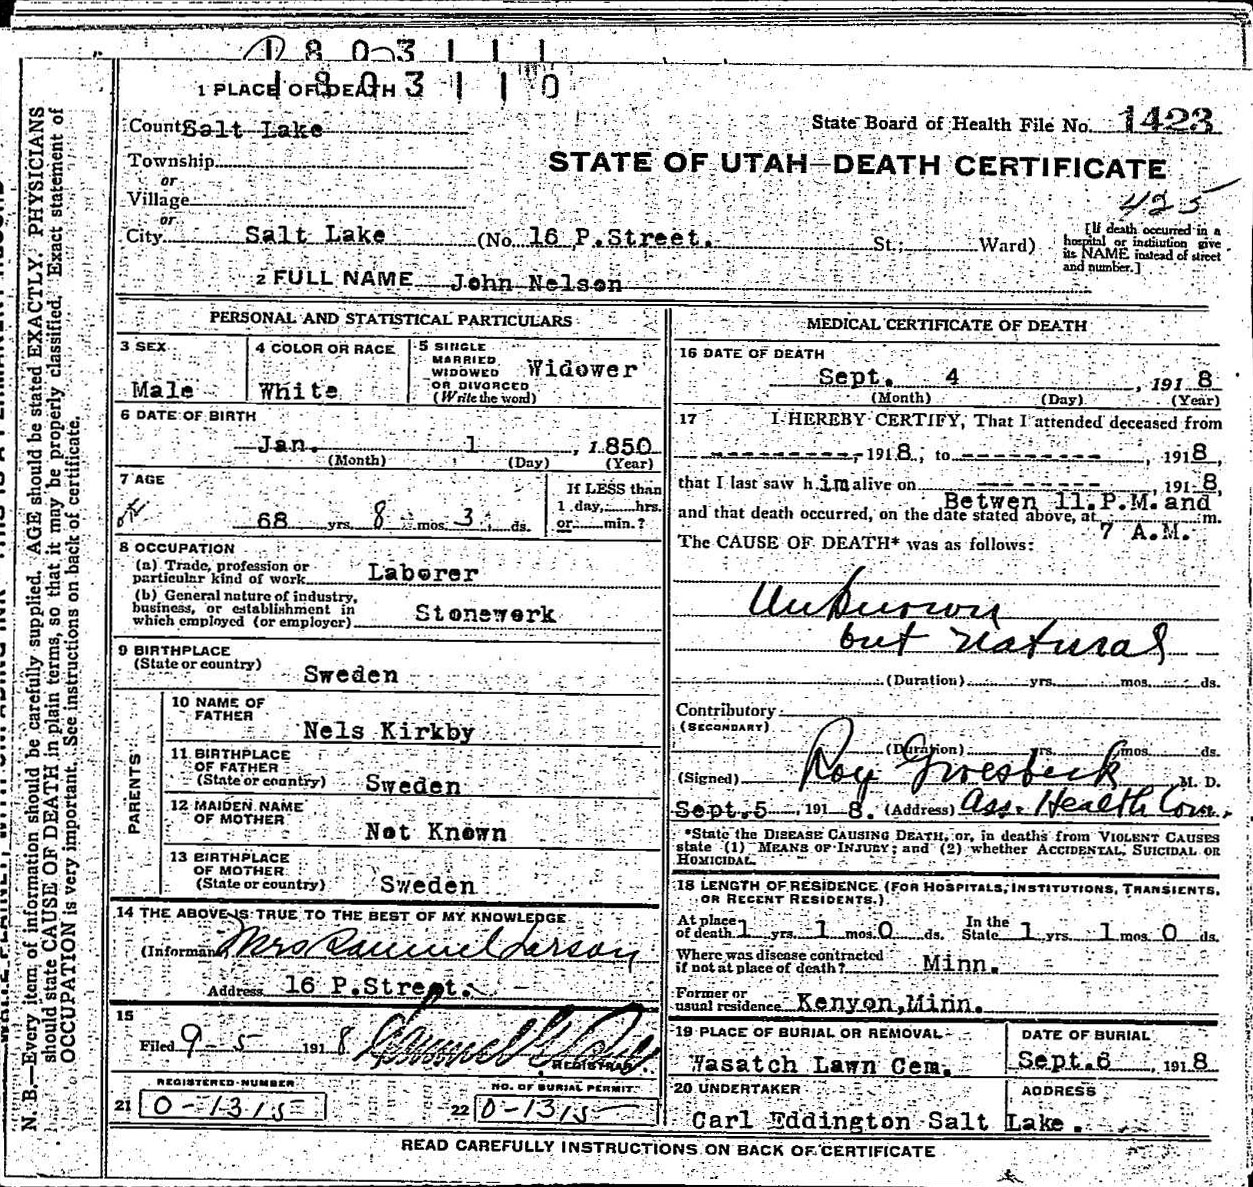 1803111
1803110
1 PLACE OF DEATH
County Salt Lake
State Board of Health File No. 1423
Township
or
STATE OF UTAH—DEATH CERTIFICATE
Village
or
425
City Salt Lake (No. 16 P.Street. St.; Ward)
[If death occurred in a hospital or institution give its NAME instead of street and number.]
2 FULL NAME John Nelson
PERSONAL AND STATISTICAL PARTICULARS
3 SEX
Male
4 COLOR OR RACE
White
5 SINGLE
MARRIED
WIDOWED
OR DIVORCED
(Write the word)
Widower
6 DATE OF BIRTH
Jan. 1, 1850
(Month) (Day) (Year)
7 AGE
68 yrs. 8 mos. 3 ds.
If LESS than
1 day, hrs.
or min.?
8 OCCUPATION
(a) Trade, profession or
particular kind of work Laborer
(b) General nature of industry,
business, or establishment in
which employed (or employer) Stonework
9 BIRTHPLACE
(State or country)
Sweden
PARENTS
10 NAME OF
FATHER
Nels Kirkby
11 BIRTHPLACE
OF FATHER
(State or country) Sweden
12 MAIDEN NAME
OF MOTHER
Not Known
13 BIRTHPLACE
OF MOTHER
(State or country) Sweden
14 THE ABOVE IS TRUE TO THE BEST OF MY KNOWLEDGE
(Informant Mrs Samuel Larson
Address 16 P.Street.
15
Filed 9-5 1918
REGISTRAR.
REGISTERED NUMBER
21 0-1315
NO. OF BURIAL PERMIT
22 0-1315
MEDICAL CERTIFICATE OF DEATH
16 DATE OF DEATH
Sept. 4, 1918
(Month) (Day) (Year)
17 I HEREBY CERTIFY, That I attended deceased from
----------, 1918, to ----------, 1918,
that I last saw him alive on ---------, 1918,
Betwen 11.P.M. and
and that death occurred, on the date stated above, at m.
7 A.M.
The CAUSE OF DEATH* was as follows:
Unknown
but natural
(Duration) yrs. mos. ds.
Contributory
(SECONDARY)
(Duration) yrs. mos. ds.
(Signed) Roy Groesbeck M. D.
Sept.5, 1918. (Address) Ass. Health Com.
*State the DISEASE CAUSING DEATH, or, in deaths from VIOLENT CAUSES
state (1) MEANS OF INJURY; and (2) whether ACCIDENTAL, SUICIDAL OR
HOMICIDAL.
18 LENGTH OF RESIDENCE (FOR HOSPITALS, INSTITUTIONS, TRANSIENTS,
OR RECENT RESIDENTS.)
At place
of death 1 yrs. 1 mos. 0 ds.
In the
State 1 yrs. 1 mos. 0 ds.
Where was disease contracted
if not at place of death? Minn.
Former or
usual residence Kenyon,Minn.
19 PLACE OF BURIAL OR REMOVAL
Wasatch Lawn Cem.
DATE OF BURIAL
Sept.6, 1918
20 UNDERTAKER
ADDRESS
Carl Eddington Salt Lake.
READ CAREFULLY INSTRUCTIONS ON BACK OF CERTIFICATE
N. B.—Every item of information should be carefully supplied. AGE should be stated EXACTLY. PHYSICIANS
should state CAUSE OF DEATH in plain terms, so that it may be properly classified. Exact statement of
OCCUPATION is very important. See instructions on back of certificate.